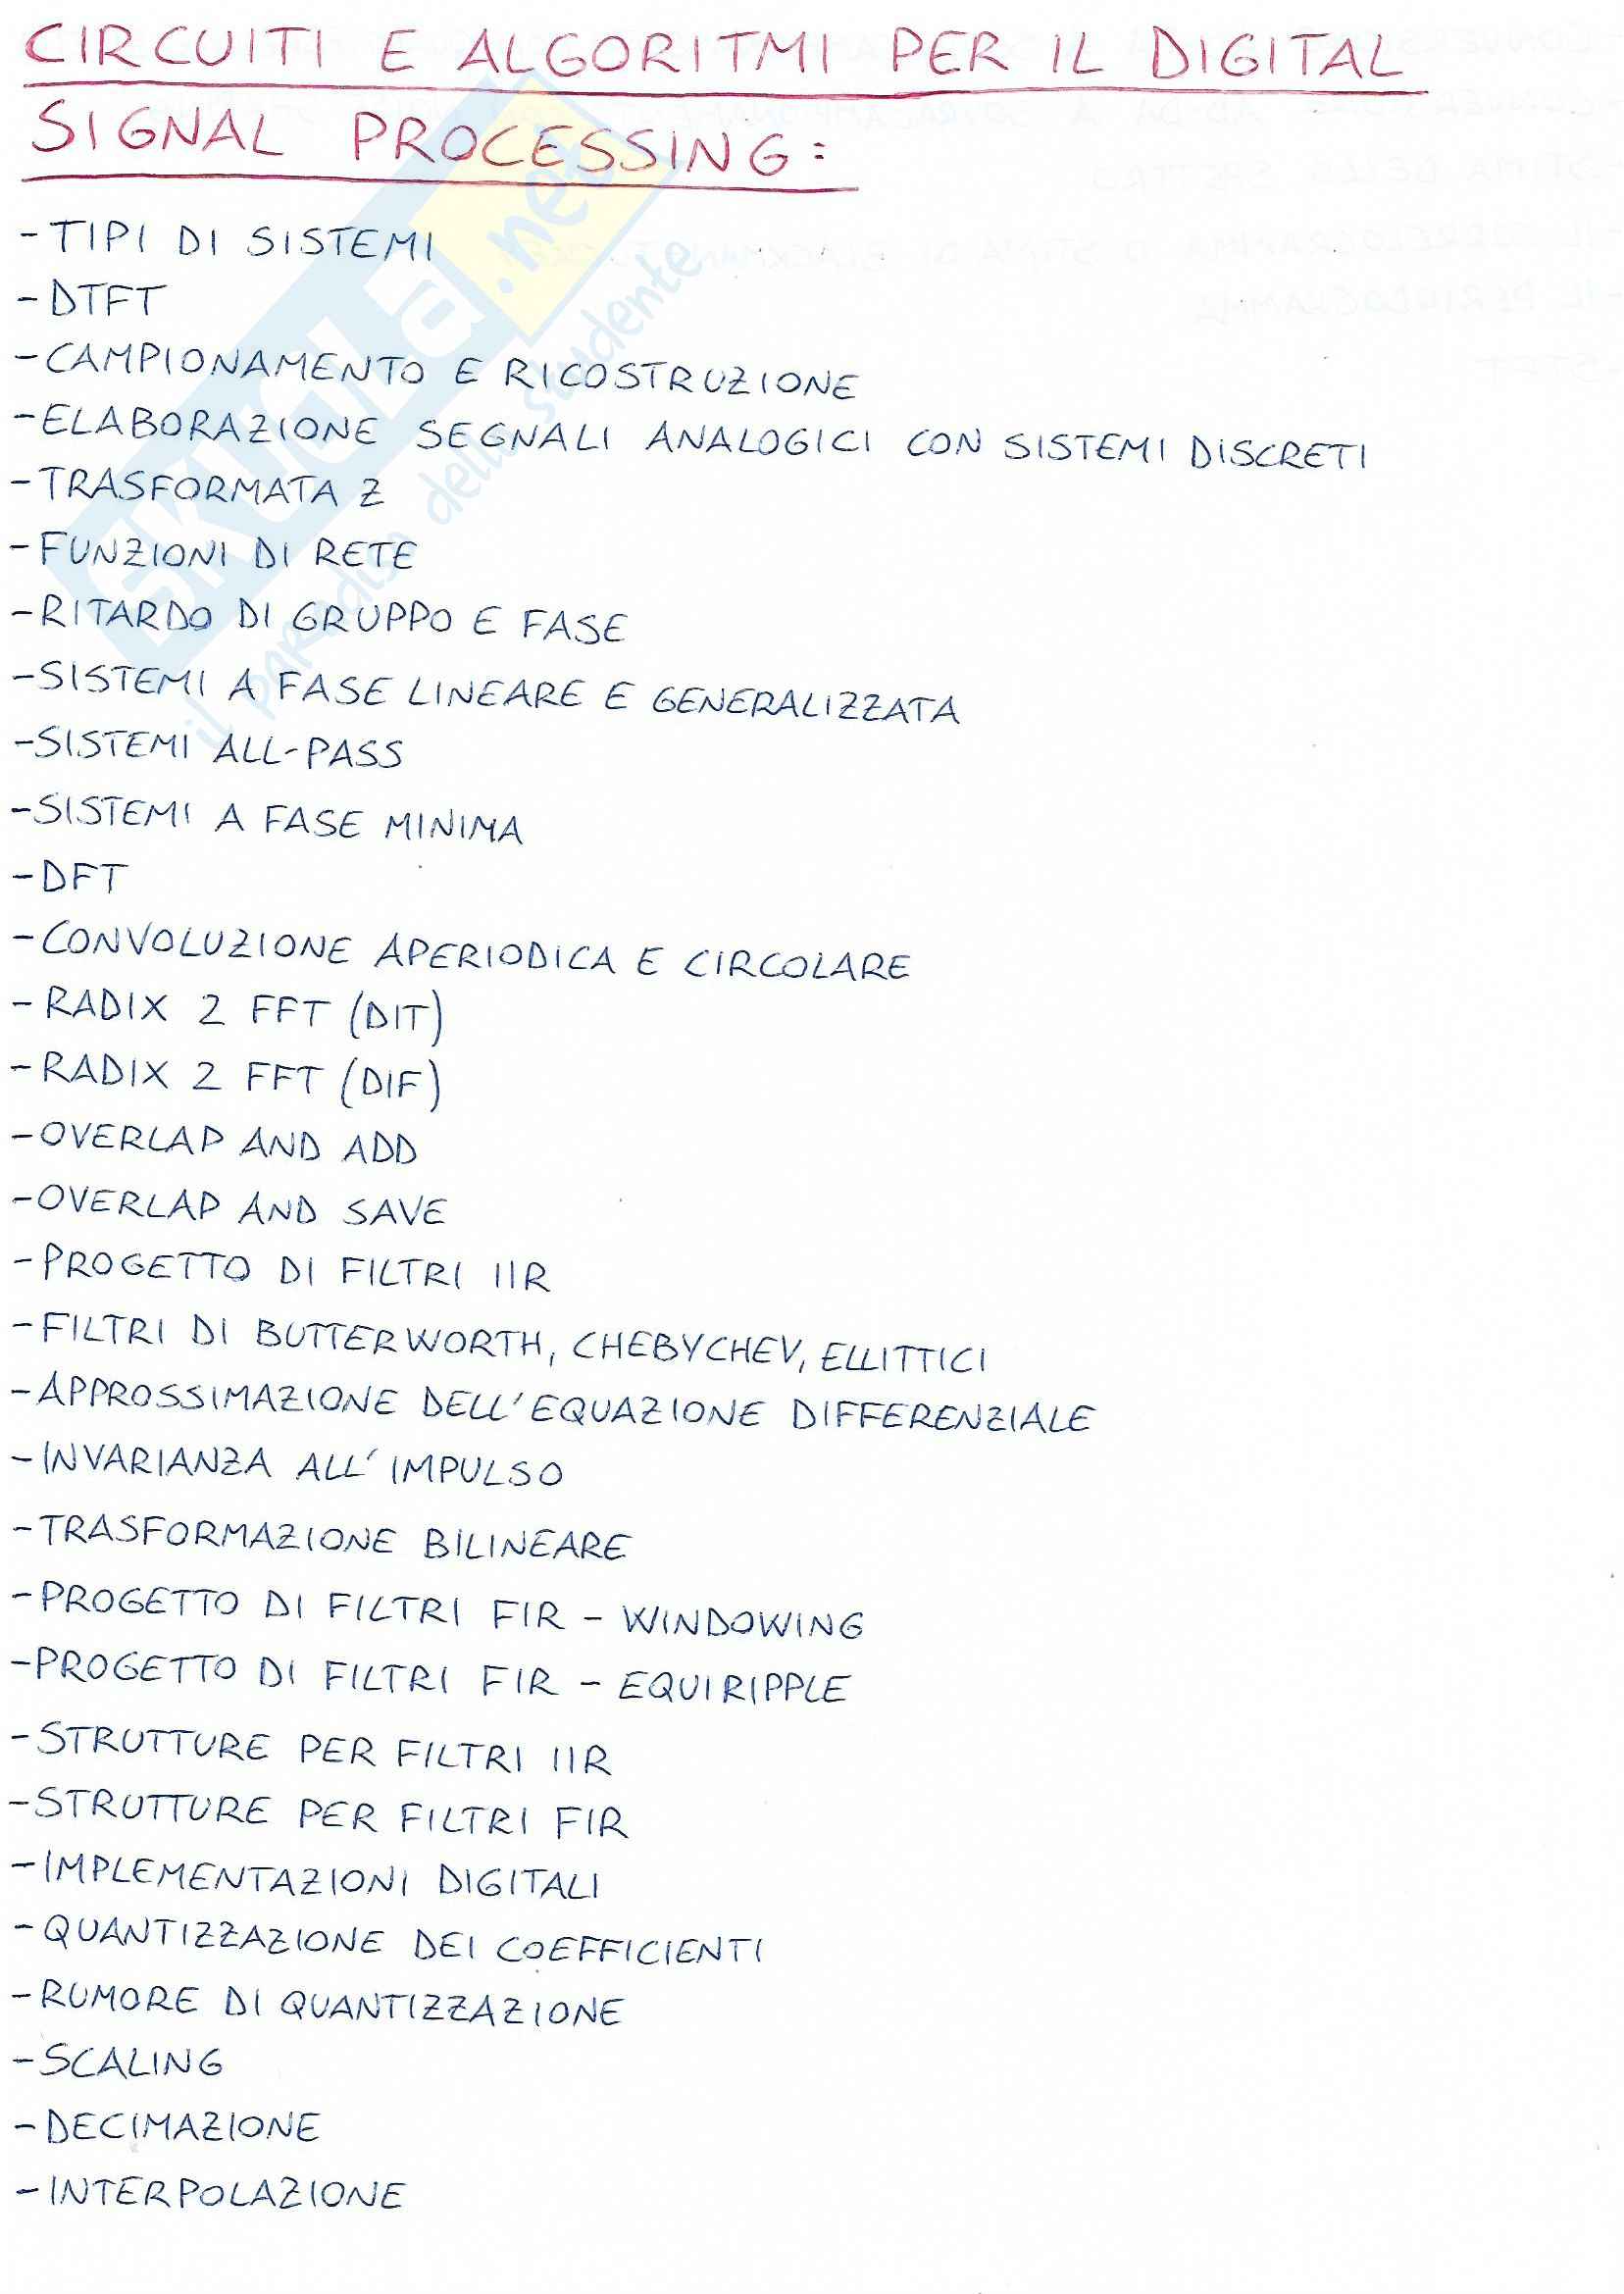 CIRCUITI E ALGORITMI PER IL DIGITAL
SIGNAL PROCESSING:
-TIPI DI SISTEMI
-DTFT
-CAMPIONAMENTO E RICOSTRUZIONE
-ELABORAZIONE SEGNALI ANALOGICI CON SISTEMI DISCRETI
-TRASFORMATA Z
-FUNZIONI DI RETE
-RITARDO DI GRUPPO E FASE
-SISTEMI A FASE LINEARE E GENERALIZZATA
-SISTEMI ALL-PASS
-SISTEMI A FASE MINIMA
-DFT
-CONVOLUZIONE APERIODICA E CIRCOLARE
-RADIX 2 FFT (DIT)
-RADIX 2 FFT (DIF)
-OVERLAP AND ADD
-OVERLAP AND SAVE
-PROGETTO DI FILTRI IIR
-FILTRI DI BUTTERWORTH, CHEBYCHEV, ELLITTICI
-APPROSSIMAZIONE DELL'EQUAZIONE DIFFERENZIALE
-INVARIANZA ALL'IMPULSO
-TRASFORMAZIONE BILINEARE
-PROGETTO DI FILTRI FIR - WINDOWING
-PROGETTO DI FILTRI FIR - EQUIRIPPLE
-STRUTTURE PER FILTRI IIR
-STRUTTURE PER FILTRI FIR
-IMPLEMENTAZIONI DIGITALI
-QUANTIZZAZIONE DEI COEFFICIENTI
-RUMORE DI QUANTIZZAZIONE
-SCALING
-DECIMAZIONE
-INTERPOLAZIONE
skuola.net
il paradiso dello studente